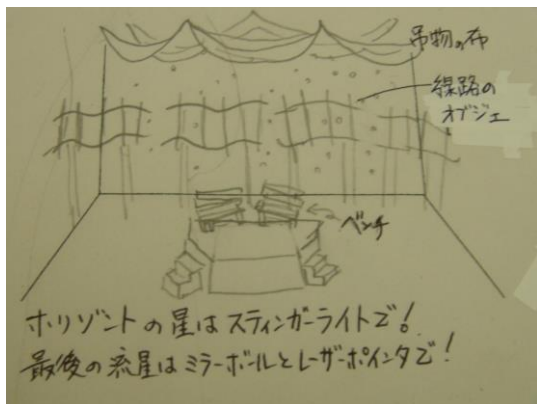 吊物の布
線路の
オブジェ
ベンチ
ホリゾントの星はスティンガーライトで!
最後の流星はミラーボールとレーザーポインタで!